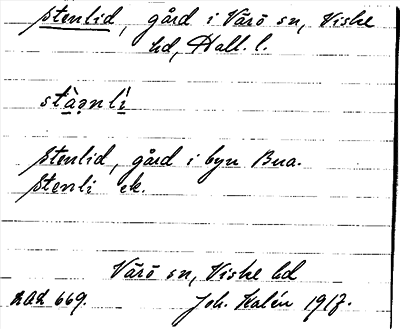 Stenlid, gård i Värö sn, Viske
hd, Hall. l.
stä̀ənlí
Stenlid, gård i byn Bua.
Stenli ek.
Värö sn, Viske hd
RAÄ 669. Joh. Kalén 1917.